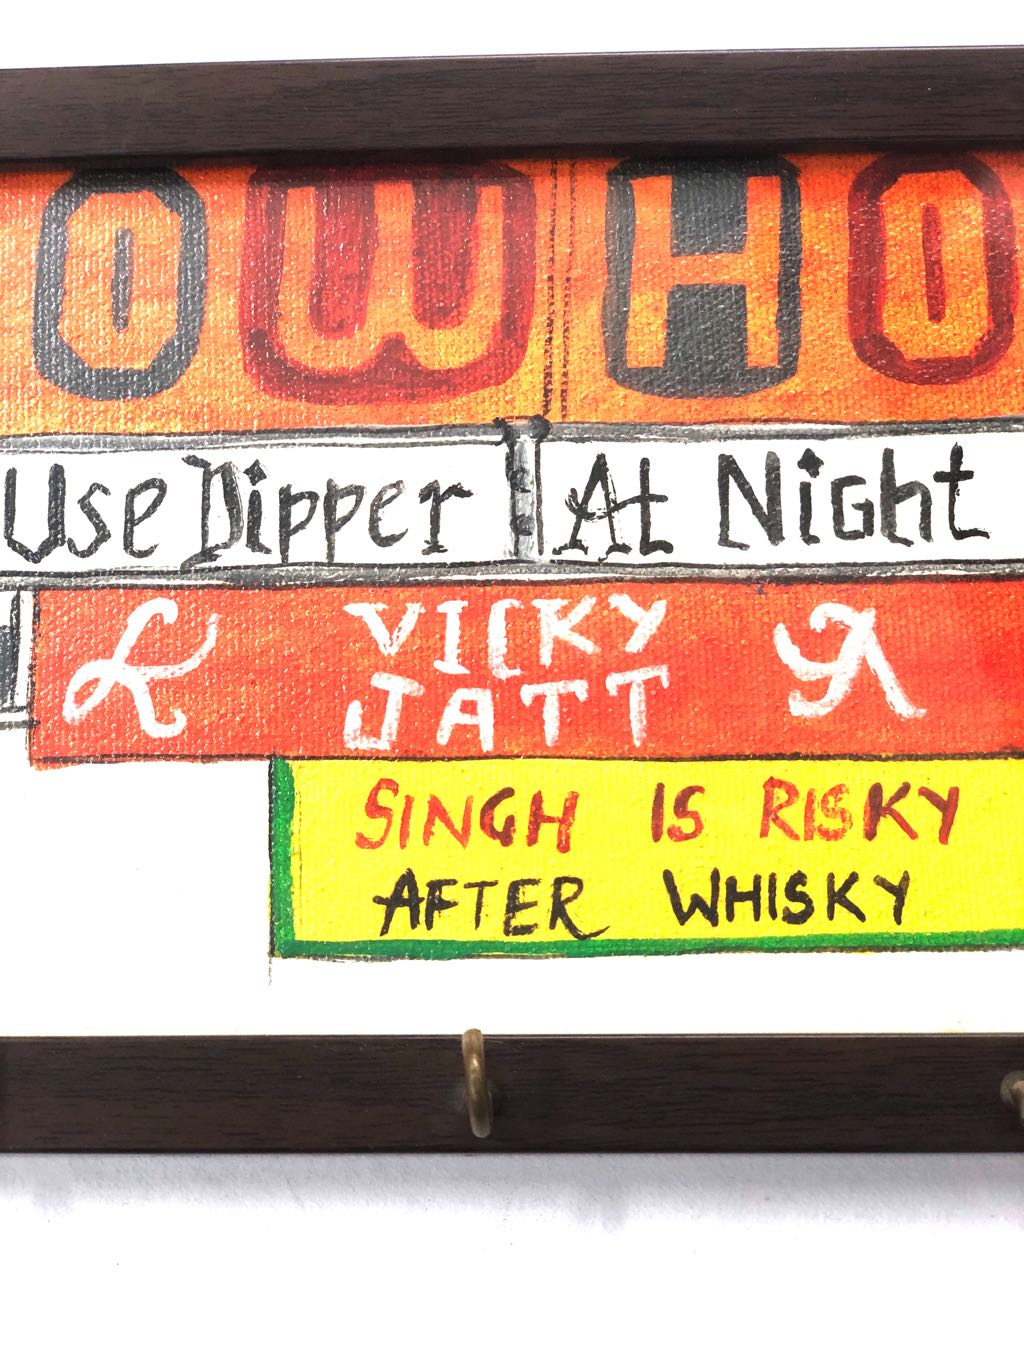 OW HO
Use Dipper At Night
VICKY
JATT
SINGH IS RISKY
AFTER WHISKY